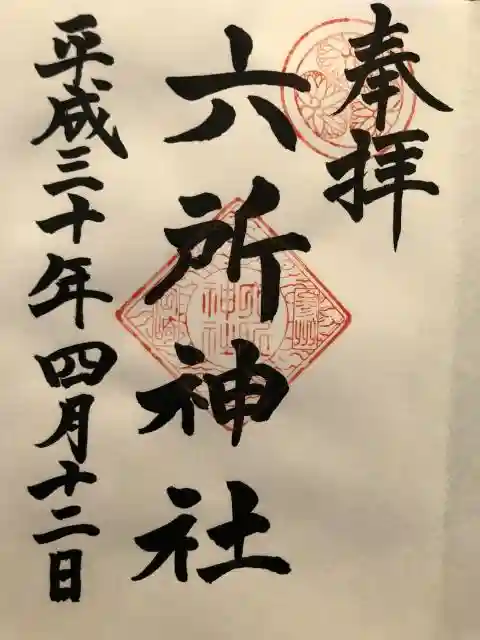 奉拝
六所神社
平成三十年四月十二日
六所
神社